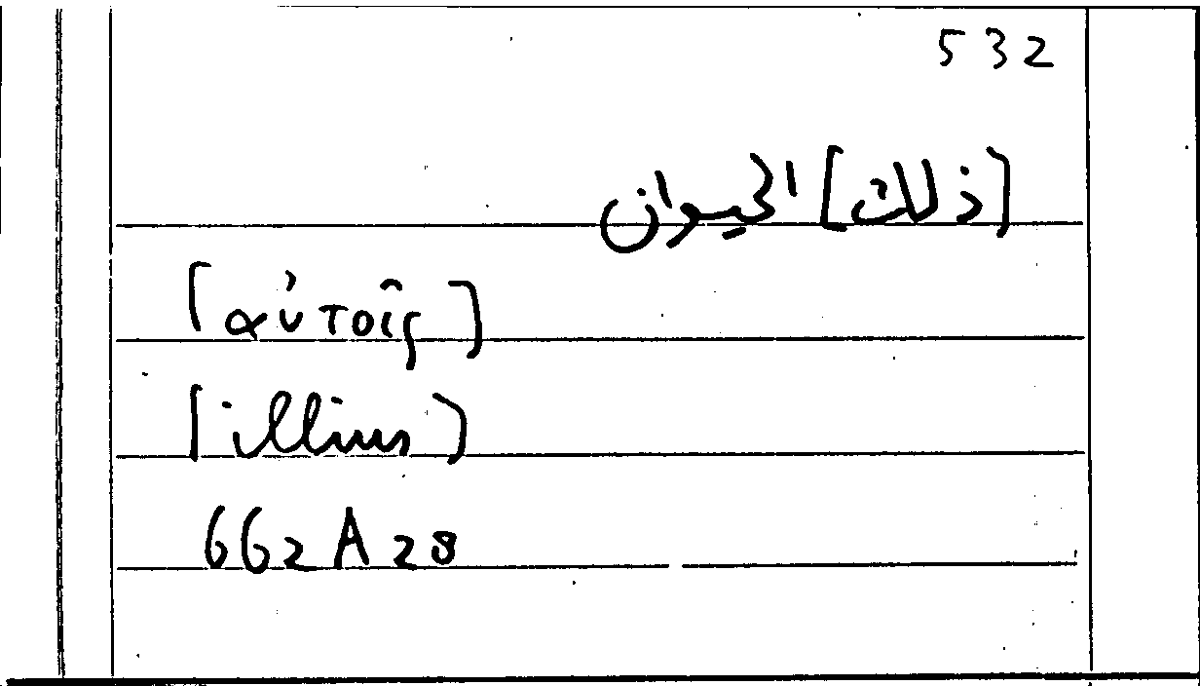 532
[ذلك] الحيوان
[αὐτοῖς]
[illius]
662A28